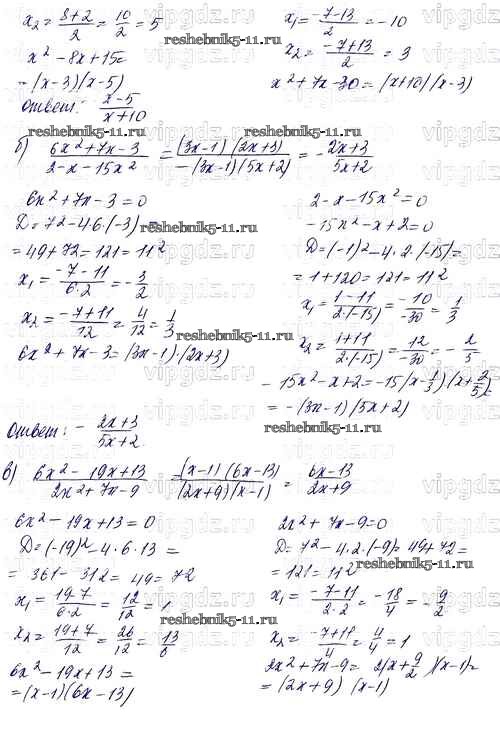 x₂ = (8+2)/2 = 10/2 = 5
x² - 8x + 15 =
= (x-3)(x-5)
Ответ: (x-5)/(x+10)
x₁ = (-7-13)/2 = -10
x₂ = (-7+13)/2 = 3
x² + 7x - 30 = (x+10)(x-3)
reshebnik5-11.ru
vipgdz.ru
б) (6x²+7x-3)/(2-x-15x²) = ((3x-1)(2x+3))/(-(3x-1)(5x+2)) = -(2x+3)/(5x+2)
6x² + 7x - 3 = 0
D = 7² - 4·6·(-3) =
= 49 + 72 = 121 = 11²
x₁ = (-7-11)/(6·2) = -3/2
x₂ = (-7+11)/12 = 4/12 = 1/3
6x² + 7x - 3 = (3x-1)·(2x+3)
2 - x - 15x² = 0
-15x² - x + 2 = 0
D = (-1)² - 4·2·(-15) =
= 1 + 120 = 121 = 11²
x₁ = (1-11)/(2·(-15)) = -10/-30 = 1/3
x₂ = (1+11)/(2·(-15)) = 12/-30 = -2/5
-15x² - x + 2 = -15(x - 1/3)(x + 2/5) =
= -(3x-1)(5x+2)
Ответ: -(2x+3)/(5x+2)
в) (6x² - 19x + 13)/(2x² + 7x - 9) = ((x-1)(6x-13))/((2x+9)(x-1)) = (6x-13)/(2x+9)
6x² - 19x + 13 = 0
D = (-19)² - 4·6·13 =
= 361 - 312 = 49 = 7²
x₁ = (19-7)/(6·2) = 12/12 = 1
x₂ = (19+7)/12 = 26/12 = 13/6
6x² - 19x + 13 =
= (x-1)(6x-13)
2x² + 7x - 9 = 0
D = 7² - 4·2·(-9) = 49 + 72 =
= 121 = 11²
x₁ = (-7-11)/(2·2) = -18/4 = -9/2
x₂ = (-7+11)/4 = 4/4 = 1
2x² + 7x - 9 = 2(x + 9/2)(x-1) =
= (2x+9)(x-1)